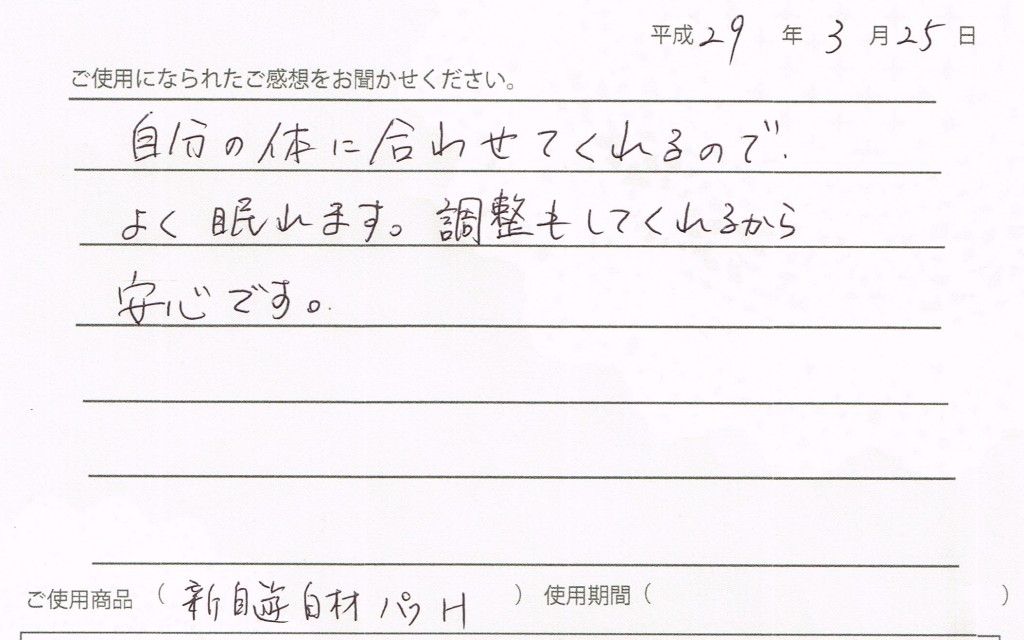 平成29年3月25日
ご使用になられたご感想をお聞かせください。
自分の体に合わせてくれるので
よく眠れます。調整もしてくれるから
安心です。
ご使用商品（新自遊自材パッH）使用期間（　）